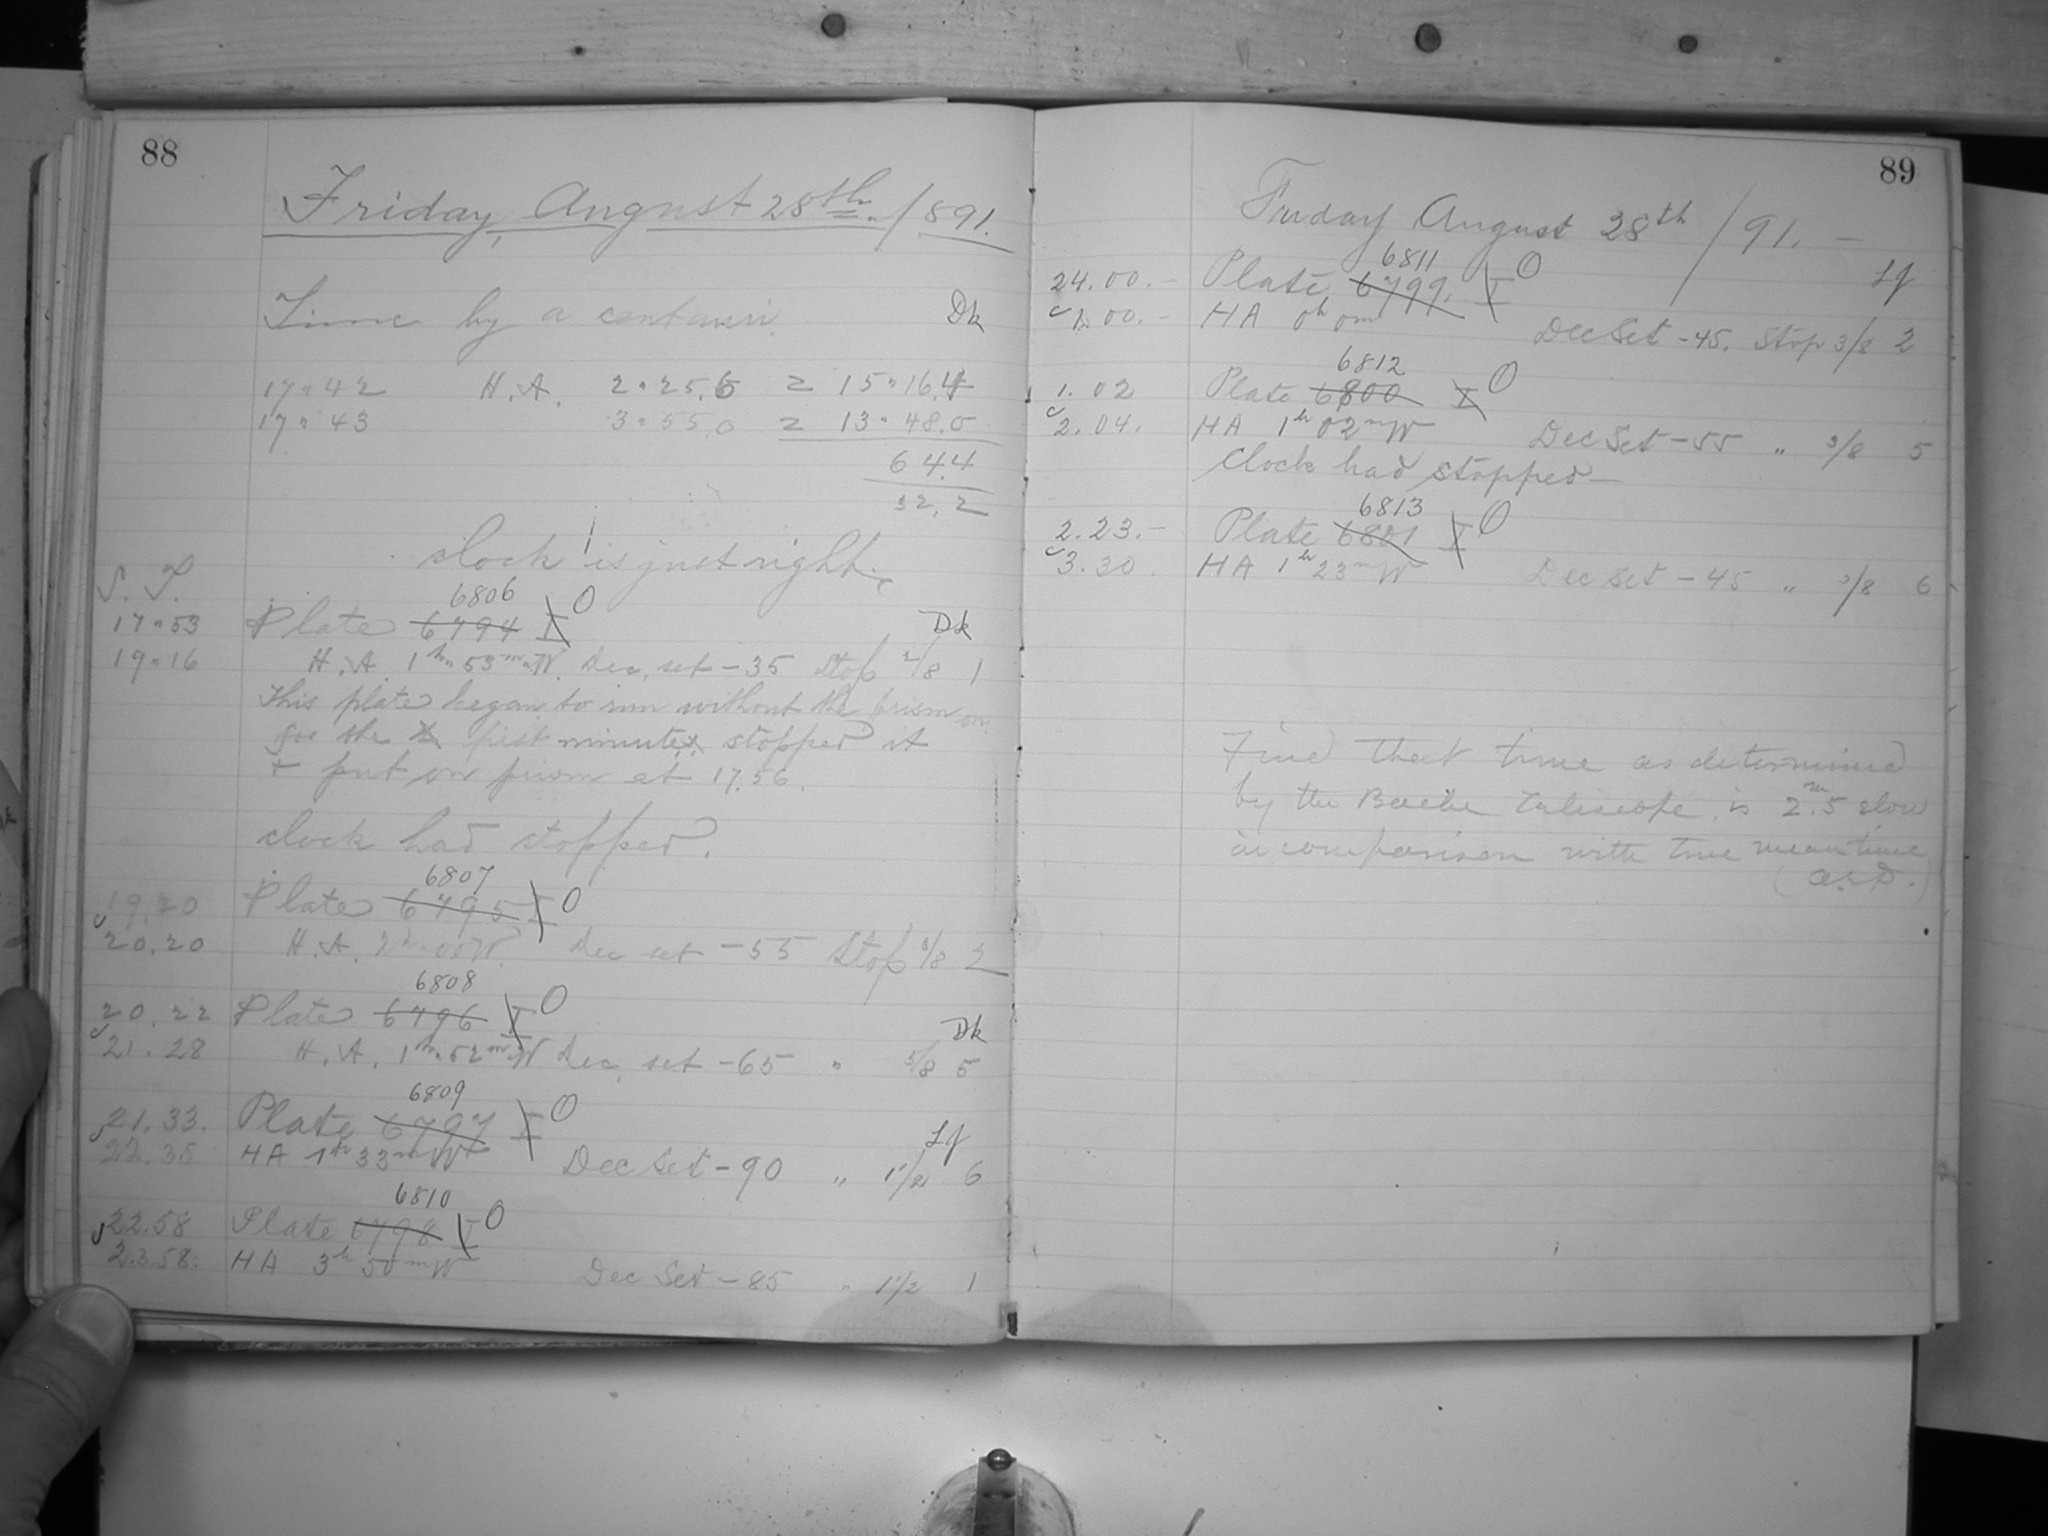 88
Friday, August 28th. 1891.
Time by a centauri Dk
17.42 H.A. 2.25.6 = 15.16.4
17.43 3.55.0 = 13.48.0
644
32.2
clock is just right.
S. T.
6806
17.53 Plate 6794 I O Dk
19.16 H.A. 1h. 53m. W. Dec. set -35 Stop 2/8 1
This plate began to run without the prism on
for the first minute stopped it
+ put on prism at 17.56.
clock had stopped.
6807
19.20 Plate 6795 I O
20.20 H.A. 2h 00 W. Dec set -55 Stop 3/8 2
6808
20.22 Plate 6796 I O Dk
21.28 H.A. 1h. 52m. W Dec. set -65 " 3/8 5
6809
21.33. Plate 6797 I O Lf
22.35 HA 1h 33m W Dec Set -90 " 1/2 6
6810
22.58 Plate 6798 I O
23.58. HA 3h 50m W Dec Set -85 " 1/2 1
89
Friday August 28th /91. -
6811
24.00.- Plate 6799. I O Lf
1.00.- HA 0h 0m Dec Set -45. Stop 3/8 2
6812
1.02 Plate 6800 I O
2.04. HA 1h 02m W Dec Set -55 " 3/8 5
Clock had stopped-
6813
2.23.- Plate 6801 I O
3.30. HA 1h 23m W Dec Set -45 " 3/8 6
Find that time as determined
by the Bache Telescope, is 2m.5 slow
in comparison with true mean time